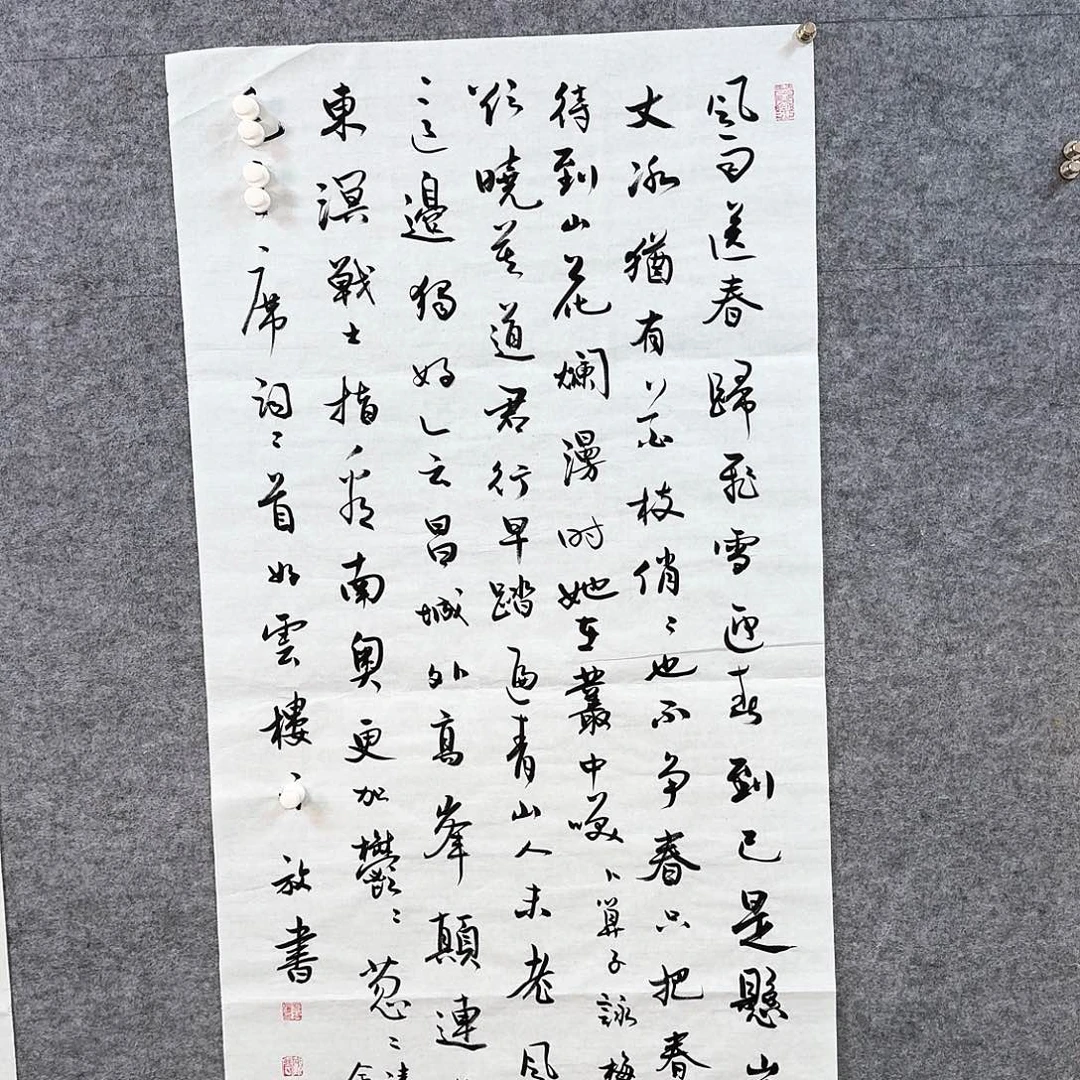 風雨送春歸飛雪迎春到已是懸
丈冰猶有花枝俏〻也不争春只把春
待到山花爛漫时她在叢中笑卜算子詠梅
欲曉莫道君行早踏遍青山人未老風
〻這邊獨好會昌城外高峯顛連
東溟戰士指看南奥更加鬱〻葱〻
席詞二首如雲樓放書